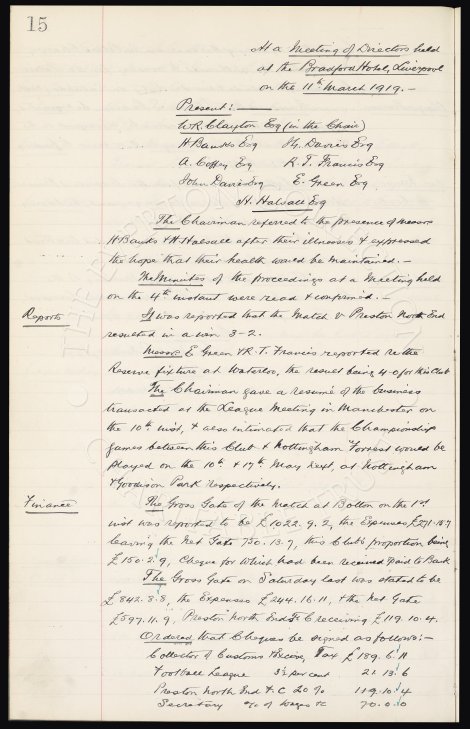 15
At a Meeting of Directors held
at the Bradford Hotel, Liverpool
on the 11th March 1919. -
Present:-
W.R. Clayton Esq (in the Chair)
H Banks Esq
A. Coffey Esq
R. T. Francis Esq
John Davies Esq
E. Green Esq
H. Halsall Esq
The Chairman referred to the presence of Messrs
H Banks & H Halsall after their illnesses & expressed
the hope that their health would be maintained. -
The Minutes of the proceedings at a Meeting held
on the 4th instant were read & confirmed. -
Reports
It was reported that the Match v Preston North End
resulted in a win 3-2.
Messrs E. Green & R. T. Francis reported re the
Reserve fixture at Waterloo, the result being 4-0 for this Club
The Chairman gave a resumé of the business
transacted at the League Meeting in Manchester on
the 10th inst, & also intimated that the Championship
games between this Club & Nottingham Forrest would be
played on the 10th & 17th May next, at Nottingham
& Goodison Park respectively.
Finance
The Gross Gate of the Match at Bolton on the 1st
inst was reported to be £1022. 9. 2, the Expenses
leaving the Net Gate 750. 13. 7, this Club's proportion being
£150. 2. 9, Cheque for which had been received & paid to Bank
The Gross Gate on Saturday last was stated to be
£842. 8. 8, the Expenses £244. 16. 11, & the Net Gate
£597. 11. 9, Preston North End F C receiving £119. 10. 4.
Ordered that Cheques be signed as follows:-
Collector of Customs & Excise, Tax £189. 6. 11
Football League 3½ per cent 21. 13. 6
Preston North End F.C 20% 119. 10. 4
Secretary a/c of Wages &c 70. 0. 0